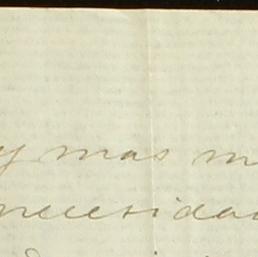 y mas m
necesidad